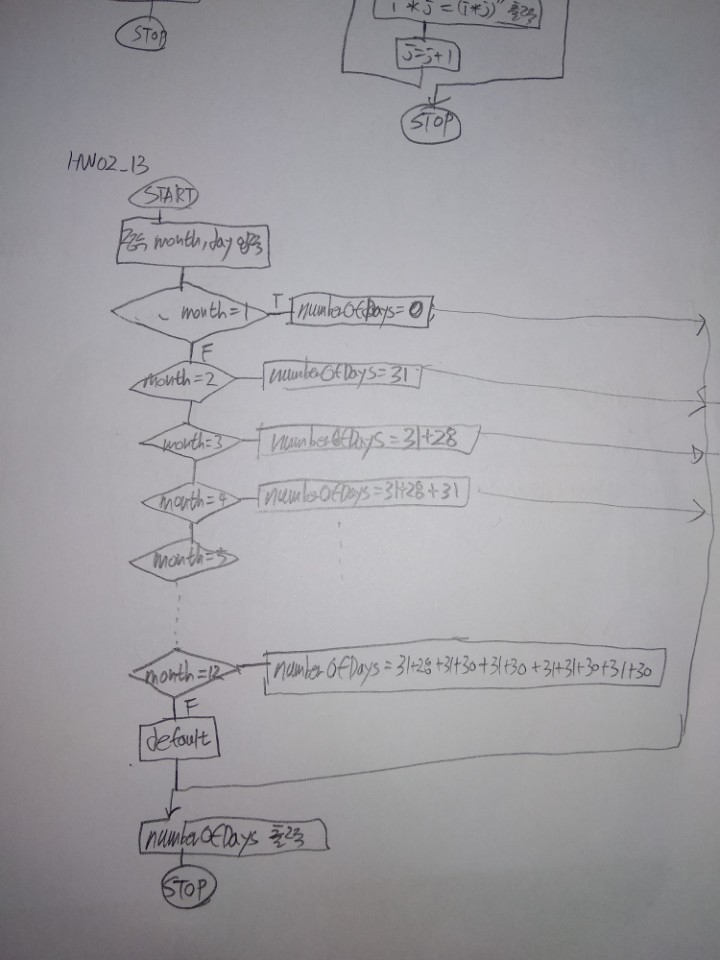 STOP
i * j = (i*j)" 출력
j=j+1
STOP
HW02_13
START
month, day 입력
month=1
T
numberOfDays= 0
F
month=2
numberOfDays=31
month=3
numberOfDays = 31+28
month=4
numberOfDays=31+28+31
month=5
month=12
numberOfDays=31+28+31+30+31+30+31+31+30+31+30
F
default
numberOfDays 출력
STOP